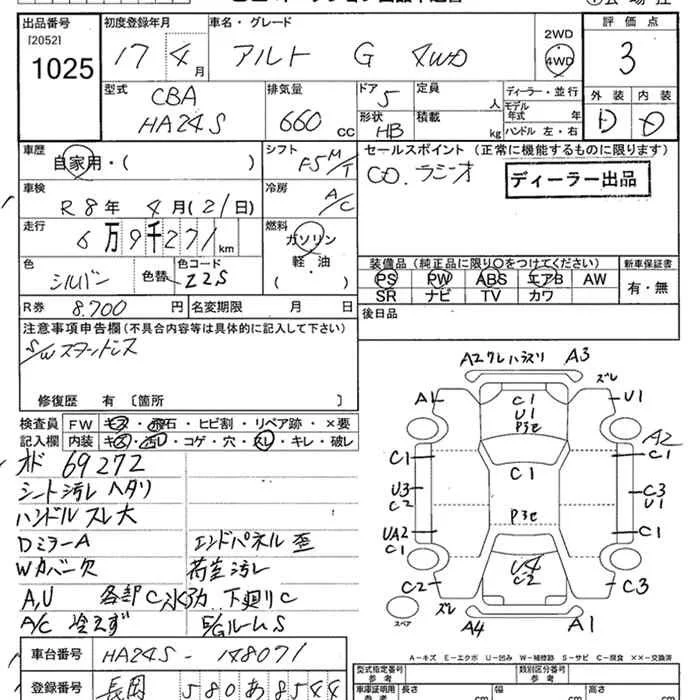 出品番号 初度登録年月 車名・グレード 2WD 評価点
[2052] 1025 17 4月 アルト G 4WD 4WD 3
型式 CBA HA24S 排気量 660 cc ドア 5 定員 人 ディーラー・並行 外装 内装
形状 HB 積載 kg モデル年式 年 D D
ハンドル 左・右
車歴 自家用・( ) シフト F5 M/T セールスポイント (正常に機能するものに限ります)
CD. ラジオ ディーラー出品
車検 R8年 4月(21日) 冷房 A/C
走行 6万9千271km 燃料 ガソリン 軽・油 ( )
色 シルバー 色替 色コード Z2S
装備品 (純正品に限り○をつけてください) 新車保証書
PS PW ABS エアB AW 有・無
SR ナビ TV カワ
R券 8.700円 名変期限 月 日 後日品
注意事項申告欄(不具合内容等は具体的に記入して下さい)
S/Wスタッドレス
修復歴 有 〔箇所 〕
検査員 FW キズ・飛石・ヒビ割・リペア跡・×要
記入欄 内装 キズ・汚レ・コゲ・穴・スレ・キレ・破レ
オド 69272
シート汚レ ヘタリ
ハンドル スレ大
Dミラー A エンドパネル 歪
Wカバー欠 荷室汚レ
A,U 各部C 下廻りC
A/C 冷えず E/GルームS
車台番号 HA24S-148071
登録番号 長岡 580あ8544
A2ワレ ハガスリ A3
ズレ
A1 C1 U1 U1
P3セ
A2
C1 C1 C1
U3 C2 P3セ C3 U1
UA2 C1 C1
U4 C2
C2 C3
ズレ
スペア A4 A1
A-キズ E-エクボ U-凹み W-補修跡 S-サビ C-腐食 ××-交換済
型式指定番号 参考 類別区分番号 参考
車庫証明用 参考 長さ cm 幅 cm 高さ cm